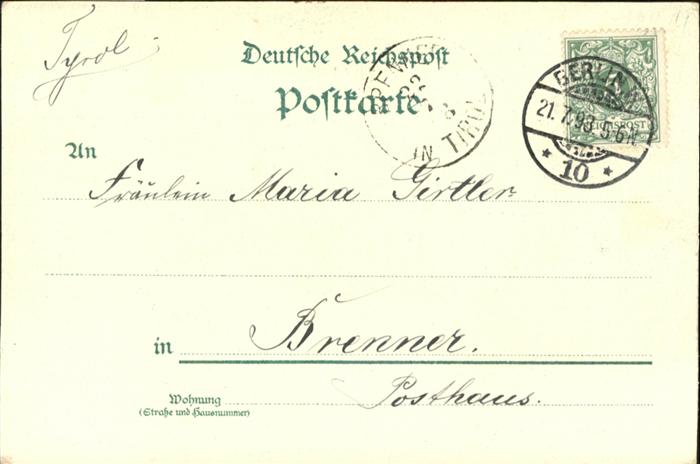 Tyrol.
Deutsche Reichspost
Postkarte
IN TIROL
BERLIN
21.7.93. 5-6
* 10 *
REICHSPOST
An
Fräulein Maria Girtler
in Brenner.
Wohnung
(Straße und Hausnummer)
Posthaus.